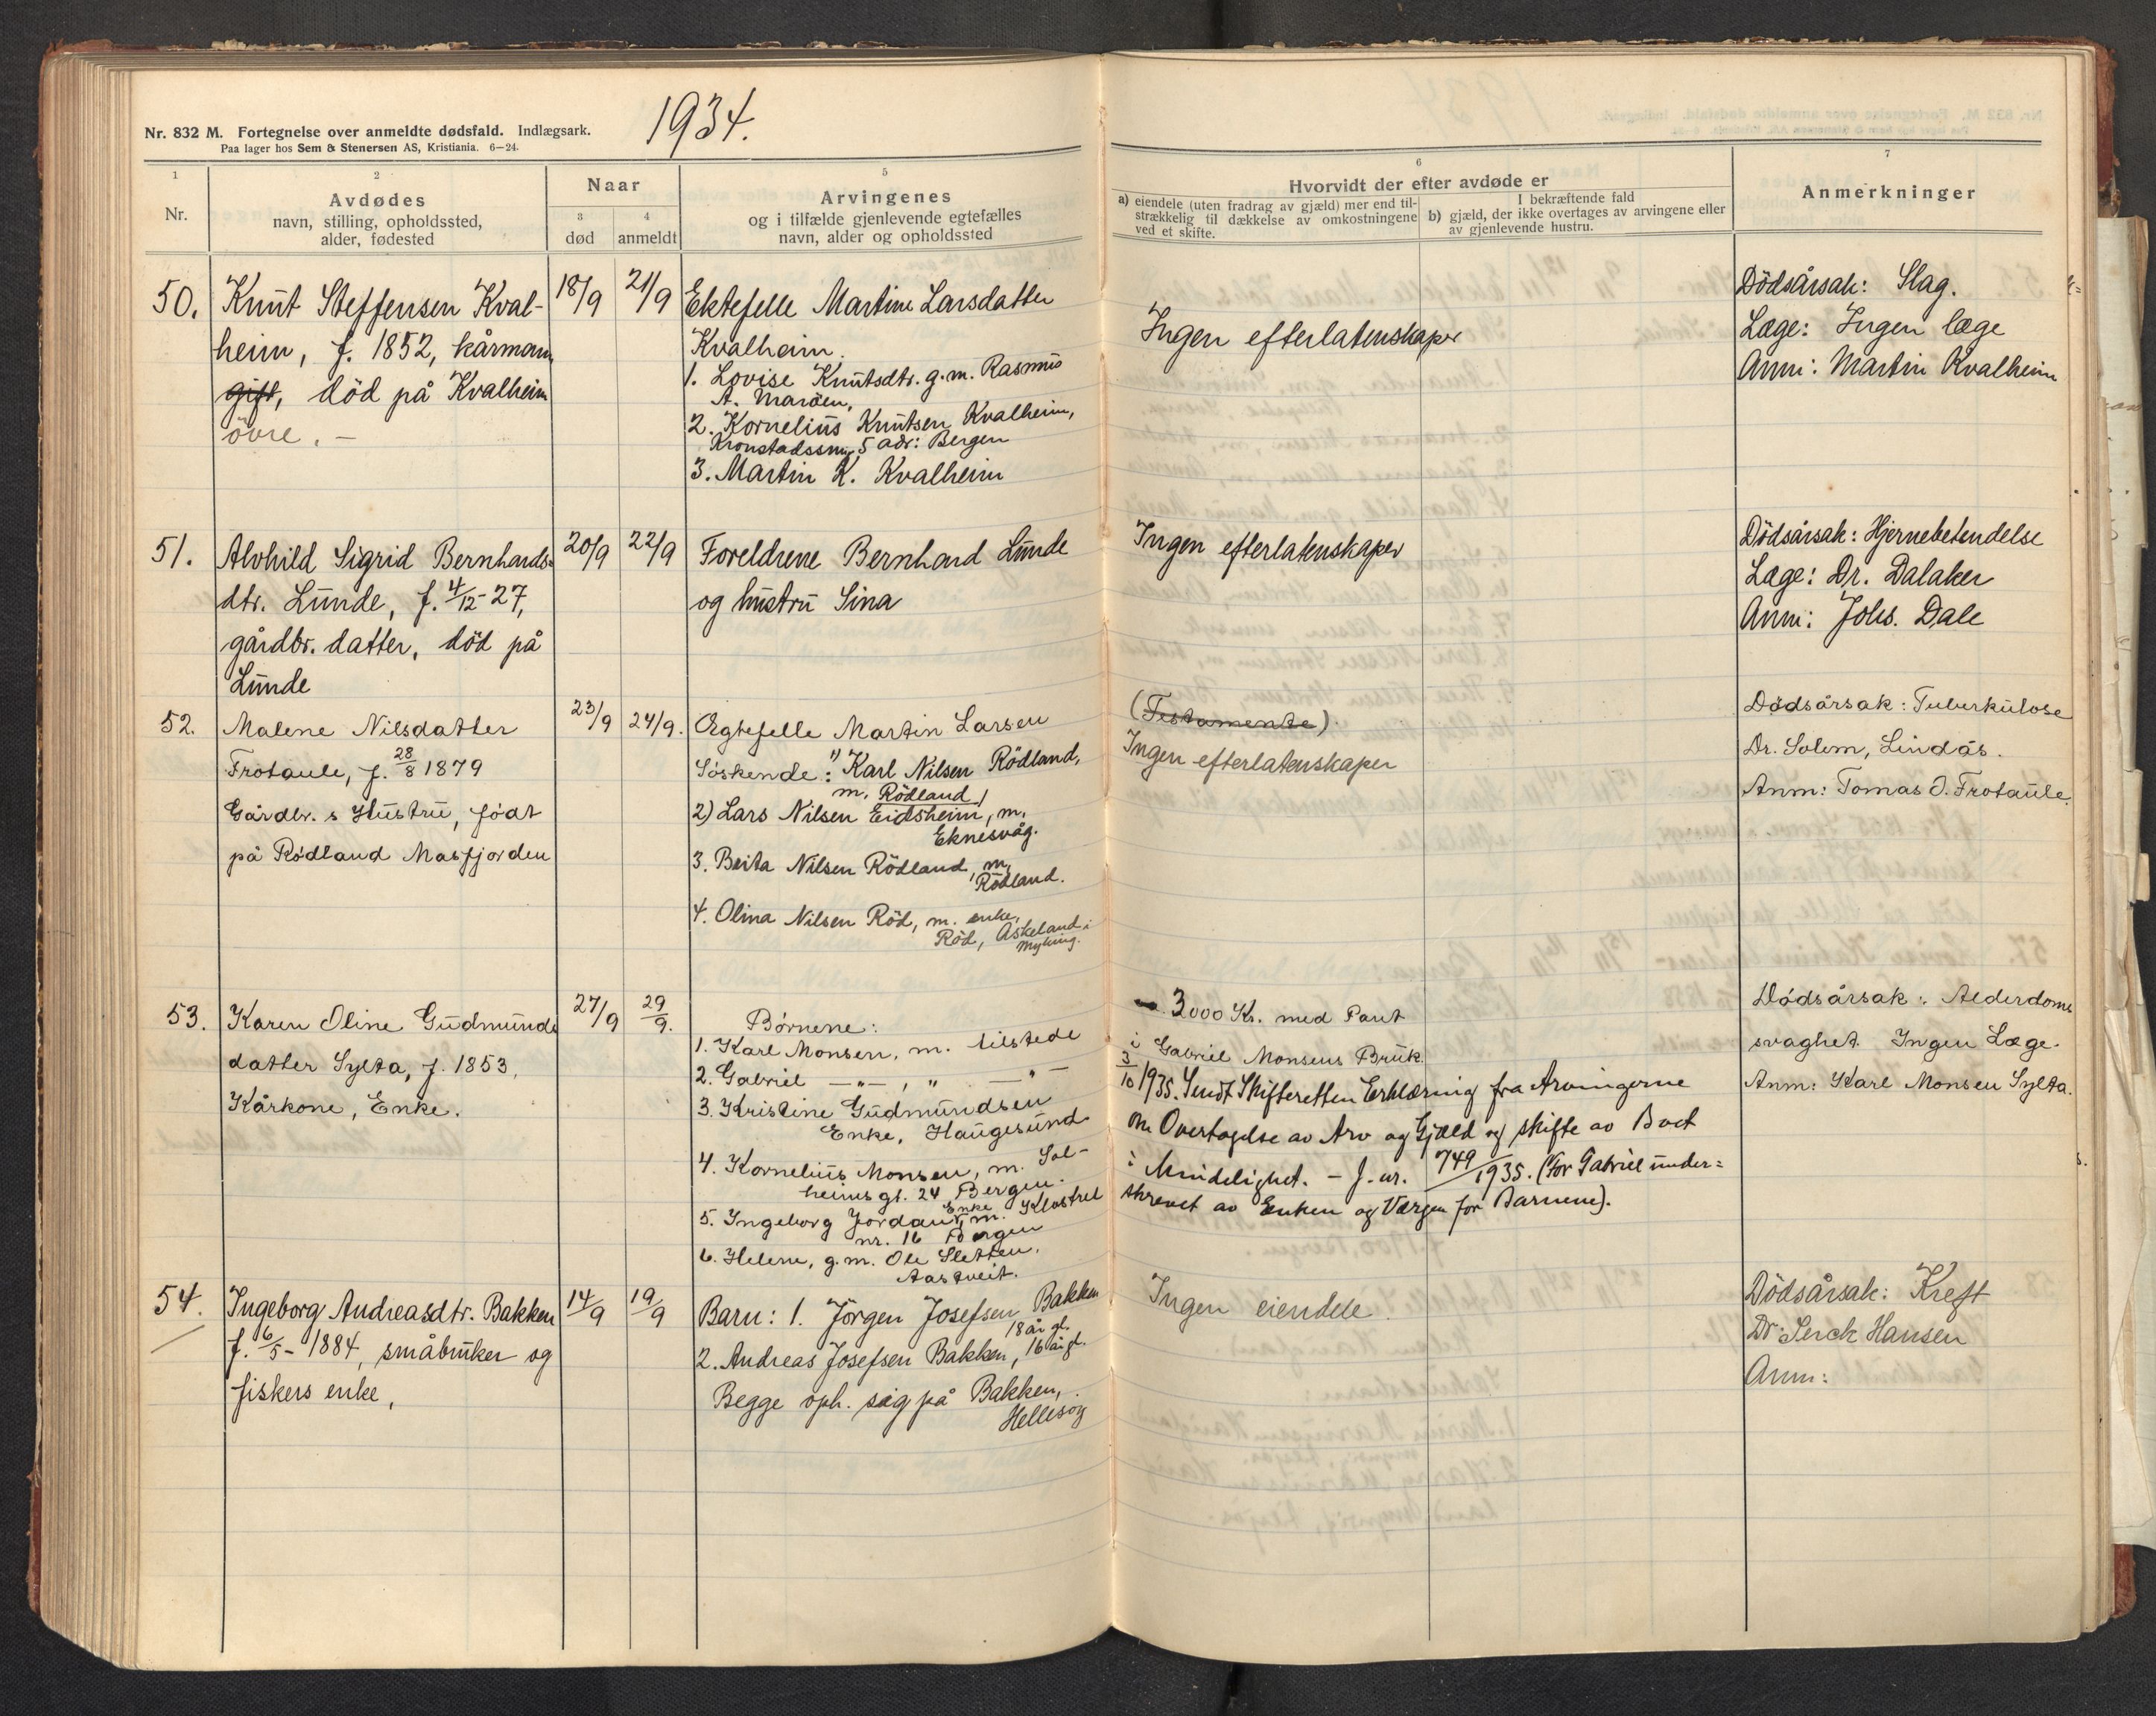 Nr. 832 M. Fortegnelse over anmeldte dødsfald. Indlægsark.
Paa lager hos Sem & Stenersen AS, Kristiania. 6—24.
1934.
1
Nr.
2
Avdødes
navn, stilling, opholdssted,
alder, fødested
Naar
3
død
4
anmeldt
5
Arvingenes
og i tilfælde gjenlevende egtefælles
navn, alder og opholdssted
6
Hvorvidt der efter avdøde er
a) eiendele (uten fradrag av gjæld) mer end til-
strækkelig til dækkelse av omkostningene
ved et skifte.
I bekræftende fald
b) gjæld, der ikke overtages av arvingene eller
av gjenlevende hustru.
7
Anmerkninger
50.
Knut Steffensen Kval-
heim, f. 1852, kårmann
gift, död på Kvalheim
övre. —
18/9
21/9
Ektefelle Martine Larsdatter
Kvalheim.
1. Lovise Knutsdtr. g.m. Rasmus
A. Maröen,
2. Kornelius Knutsen Kvalheim,
Kronstadssmg. 5 adr: Bergen
3. Martin K. Kvalheim
Ingen efterlatenskaper
Dödsårsak: Slag.
Læge: Ingen læge
Anm: Martin Kvalheim
51.
Alvhild Sigrid Bernhards-
dtr. Lunde, f. 4/12-27,
gårdbr. datter, död på
Lunde
20/9
22/9
Foreldrene Bernhard Lunde
og hustru Sina
Ingen efterlatenskaper
Dödsårsak: Hjernebetendelse
Læge: Dr. Dalaker
Anm: Johs. Dale
52.
Malene Nilsdatter
Frotaule, f. 28/8 1879
Gårdbr.s Hustru, født
på Rødland Masfjorden
23/9
24/9.
Egtefelle Martin Larsen
Søskende: 1) Karl Nilsen Rödland,
m. Rödland
2) Lars Nilsen Eidsheim, m.
Eknesvåg.
3. Brita Nilsen Rödland, m.
Rödland.
4. Olina Nilsen Röd, m. enke,
Röd, Askeland i
Myking.
(Testamente).
Ingen efterlatenskaper
Dødsårsak: Tuberkulose
Dr. Solem, Lindås.
Anm: Tomas O. Frotaule.
53.
Karen Oline Gudmunds
datter Sylta, f. 1853,
Kårkone, Enke.
27/9
29/9.
Børnene:
1. Karl Monsen, m. tilstede
2. Gabriel —"—, " —"—
3. Kristine Gudmundsen
Enke, Haugesund
4. Kornelius Monsen, m. Sol-
heimsgt. 24, Bergen.
5. Ingeborg Jordan, Enke m. Klostret
nr. 16 Bergen
6. Helene, g.m. Ole Sletten,
Aastveit.
3000 Kr. med Pant
i Gabriel Monsens Bruk
3/10 1935. Sendt Skifteretten Erklæring fra Arvingerne
om Overtagelse av Arv og Gjæld og skifte av Boet
i Mindelighet. — J.nr. 749/1935. (For Gabriel under-
skrevet av Enken og Værgen for Barnene).
Dødsårsak: Alderdoms
svaghet. Ingen Læge.
Anm: Karl Monsen Sylta.
54.
Ingeborg Andreasdtr. Bakken
f. 6/5- 1884, småbruker og
fiskers enke,
14/9
19/9
Barn: 1. Jörgen Josefsen Bakken
18 år gl.
2. Andreas Josefsen Bakken, 16 år gl.
Begge oph. sig på Bakken,
Hellesøy
Ingen eiendele.
Dödsårsak: Kreft
Dr. Serck Hansen
Anm: